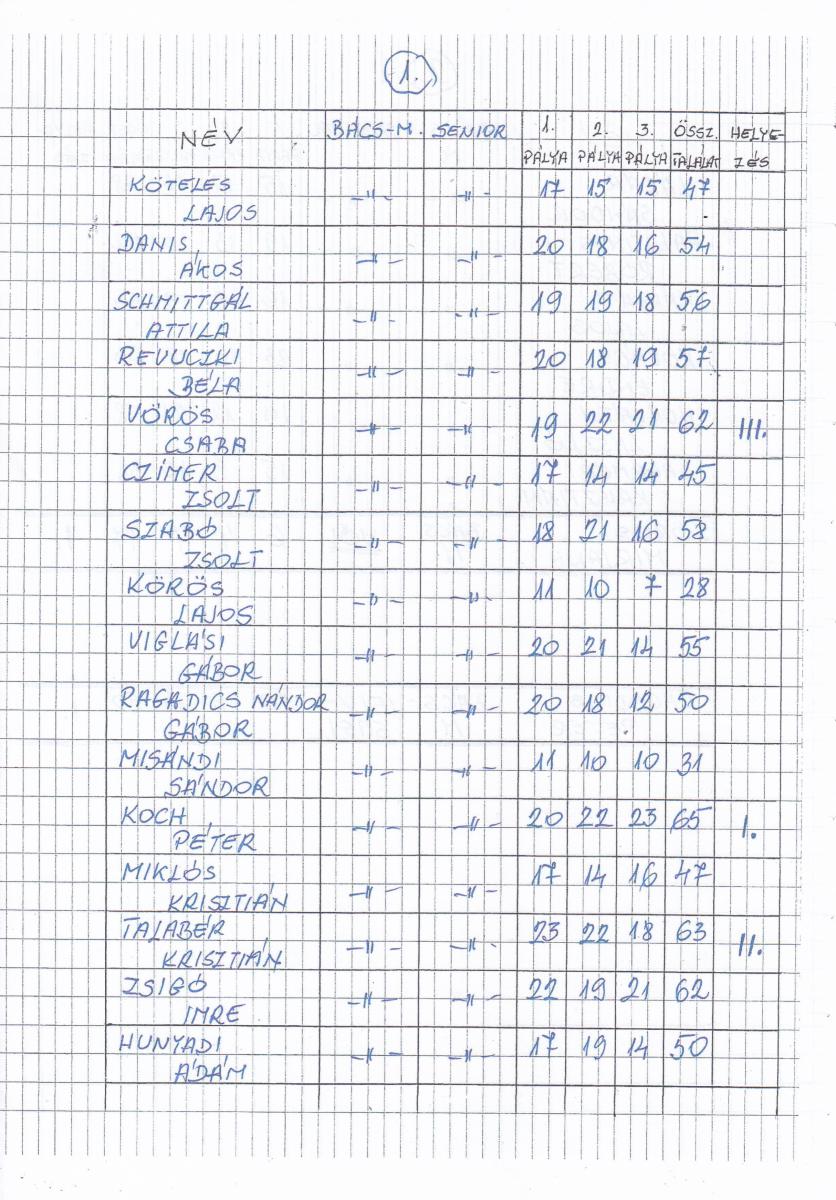 1.
NÉV BÁCS-M. SENIOR 1. PÁLYA 2. PÁLYA 3. PÁLYA ÖSSZ. TALÁLAT HELYE-ZÉS
KÖTELES -||- -||- 17 15 15 47
LAJOS
DANIS -||- -||- 20 18 16 54
ÁKOS
SCHMITTGÁL -||- -||- 19 19 18 56
ATTILA
REVUCZKI -||- -||- 20 18 19 57
BÉLA
VÖRÖS -||- -||- 19 22 21 62 III.
CSABA
CZÍMER -||- -||- 17 14 14 45
ZSOLT
SZABÓ -||- -||- 18 21 16 58
ZSOLT
KÖRÖS -||- -||- 11 10 7 28
LAJOS
VIGLÁSI -||- -||- 20 21 14 55
GÁBOR
RAGADICS NÁNDOR -||- -||- 20 18 12 50
GÁBOR
MISÁNDI -||- -||- 11 10 10 31
SÁNDOR
KOCH -||- -||- 20 22 23 65 I.
PÉTER
MIKLÓS -||- -||- 17 14 16 47
KRISZTIÁN
TALABÉR -||- -||- 23 22 18 63 II.
KRISZTIÁN
ZSIGÓ -||- -||- 22 19 21 62
IMRE
HUNYADI -||- -||- 17 19 14 50
ÁDÁM